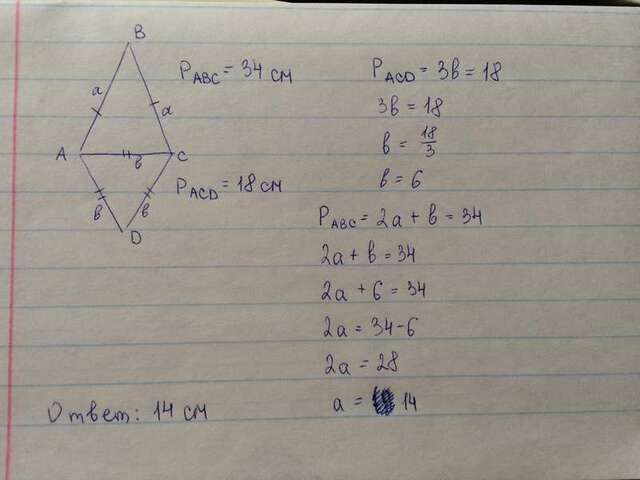 B
a
a
A
в
C
в
в
D
P ABC = 34 см
P ACD = 18 см
P ACD = 3в = 18
3в = 18
в = 18/3
в = 6
P ABC = 2a + в = 34
2a + в = 34
2a + 6 = 34
2a = 34 - 6
2a = 28
a = 14
Ответ: 14 см